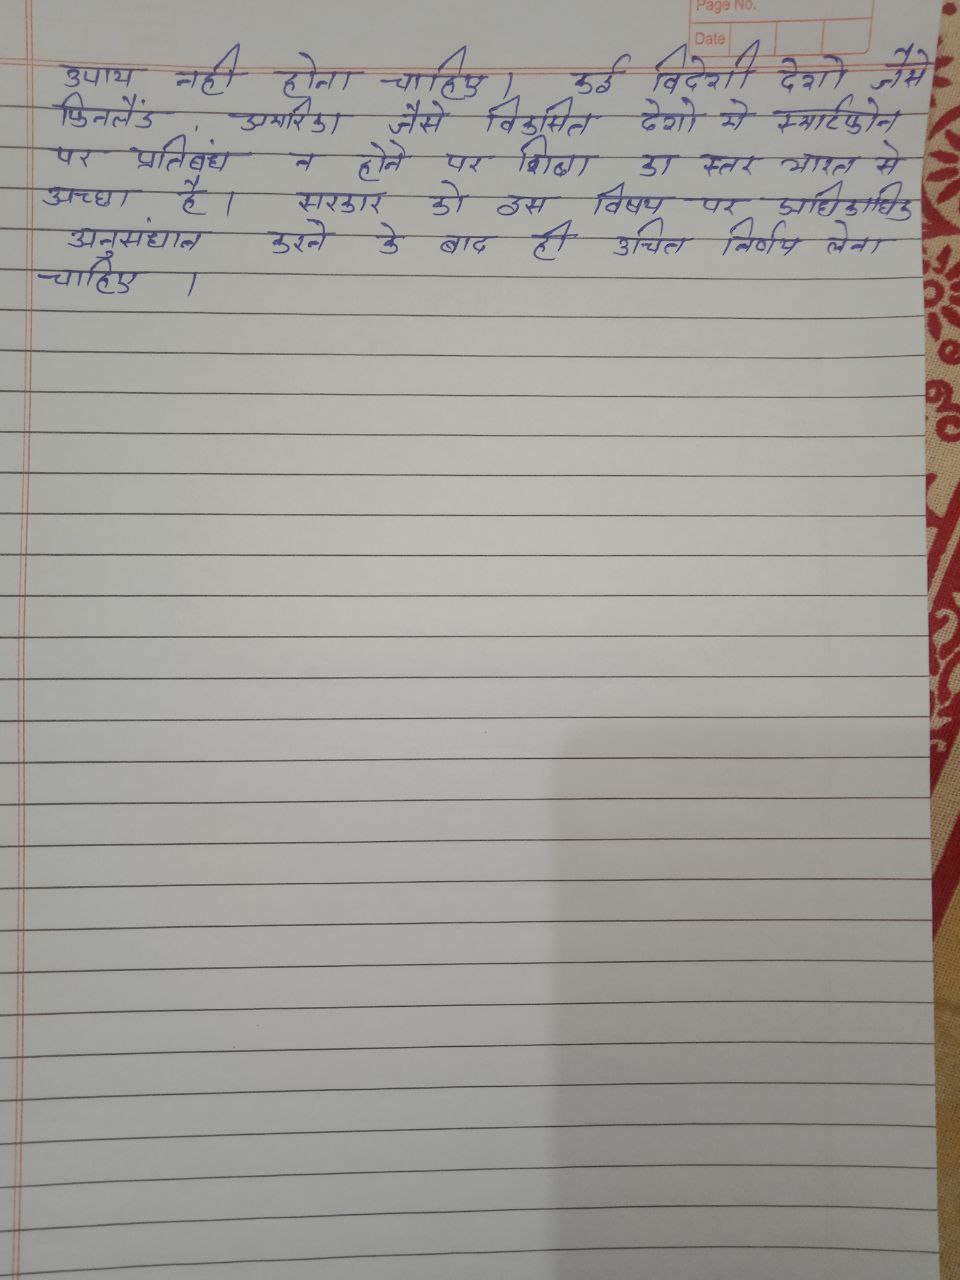 Page No.
Date
उपाय नही होना चाहिए। कई विदेशी देशो जैसे
फिनलैंड, अमरिका जैसे विकसित देशो मे स्मार्टफोन
पर प्रतिबंध न होने पर शिक्षा का स्तर भारत से
अच्छा है। सरकार को इस विषय पर अधिकाधिक
अनुसंधान करने के बाद ही उचित निर्णय लेना
चाहिए ।